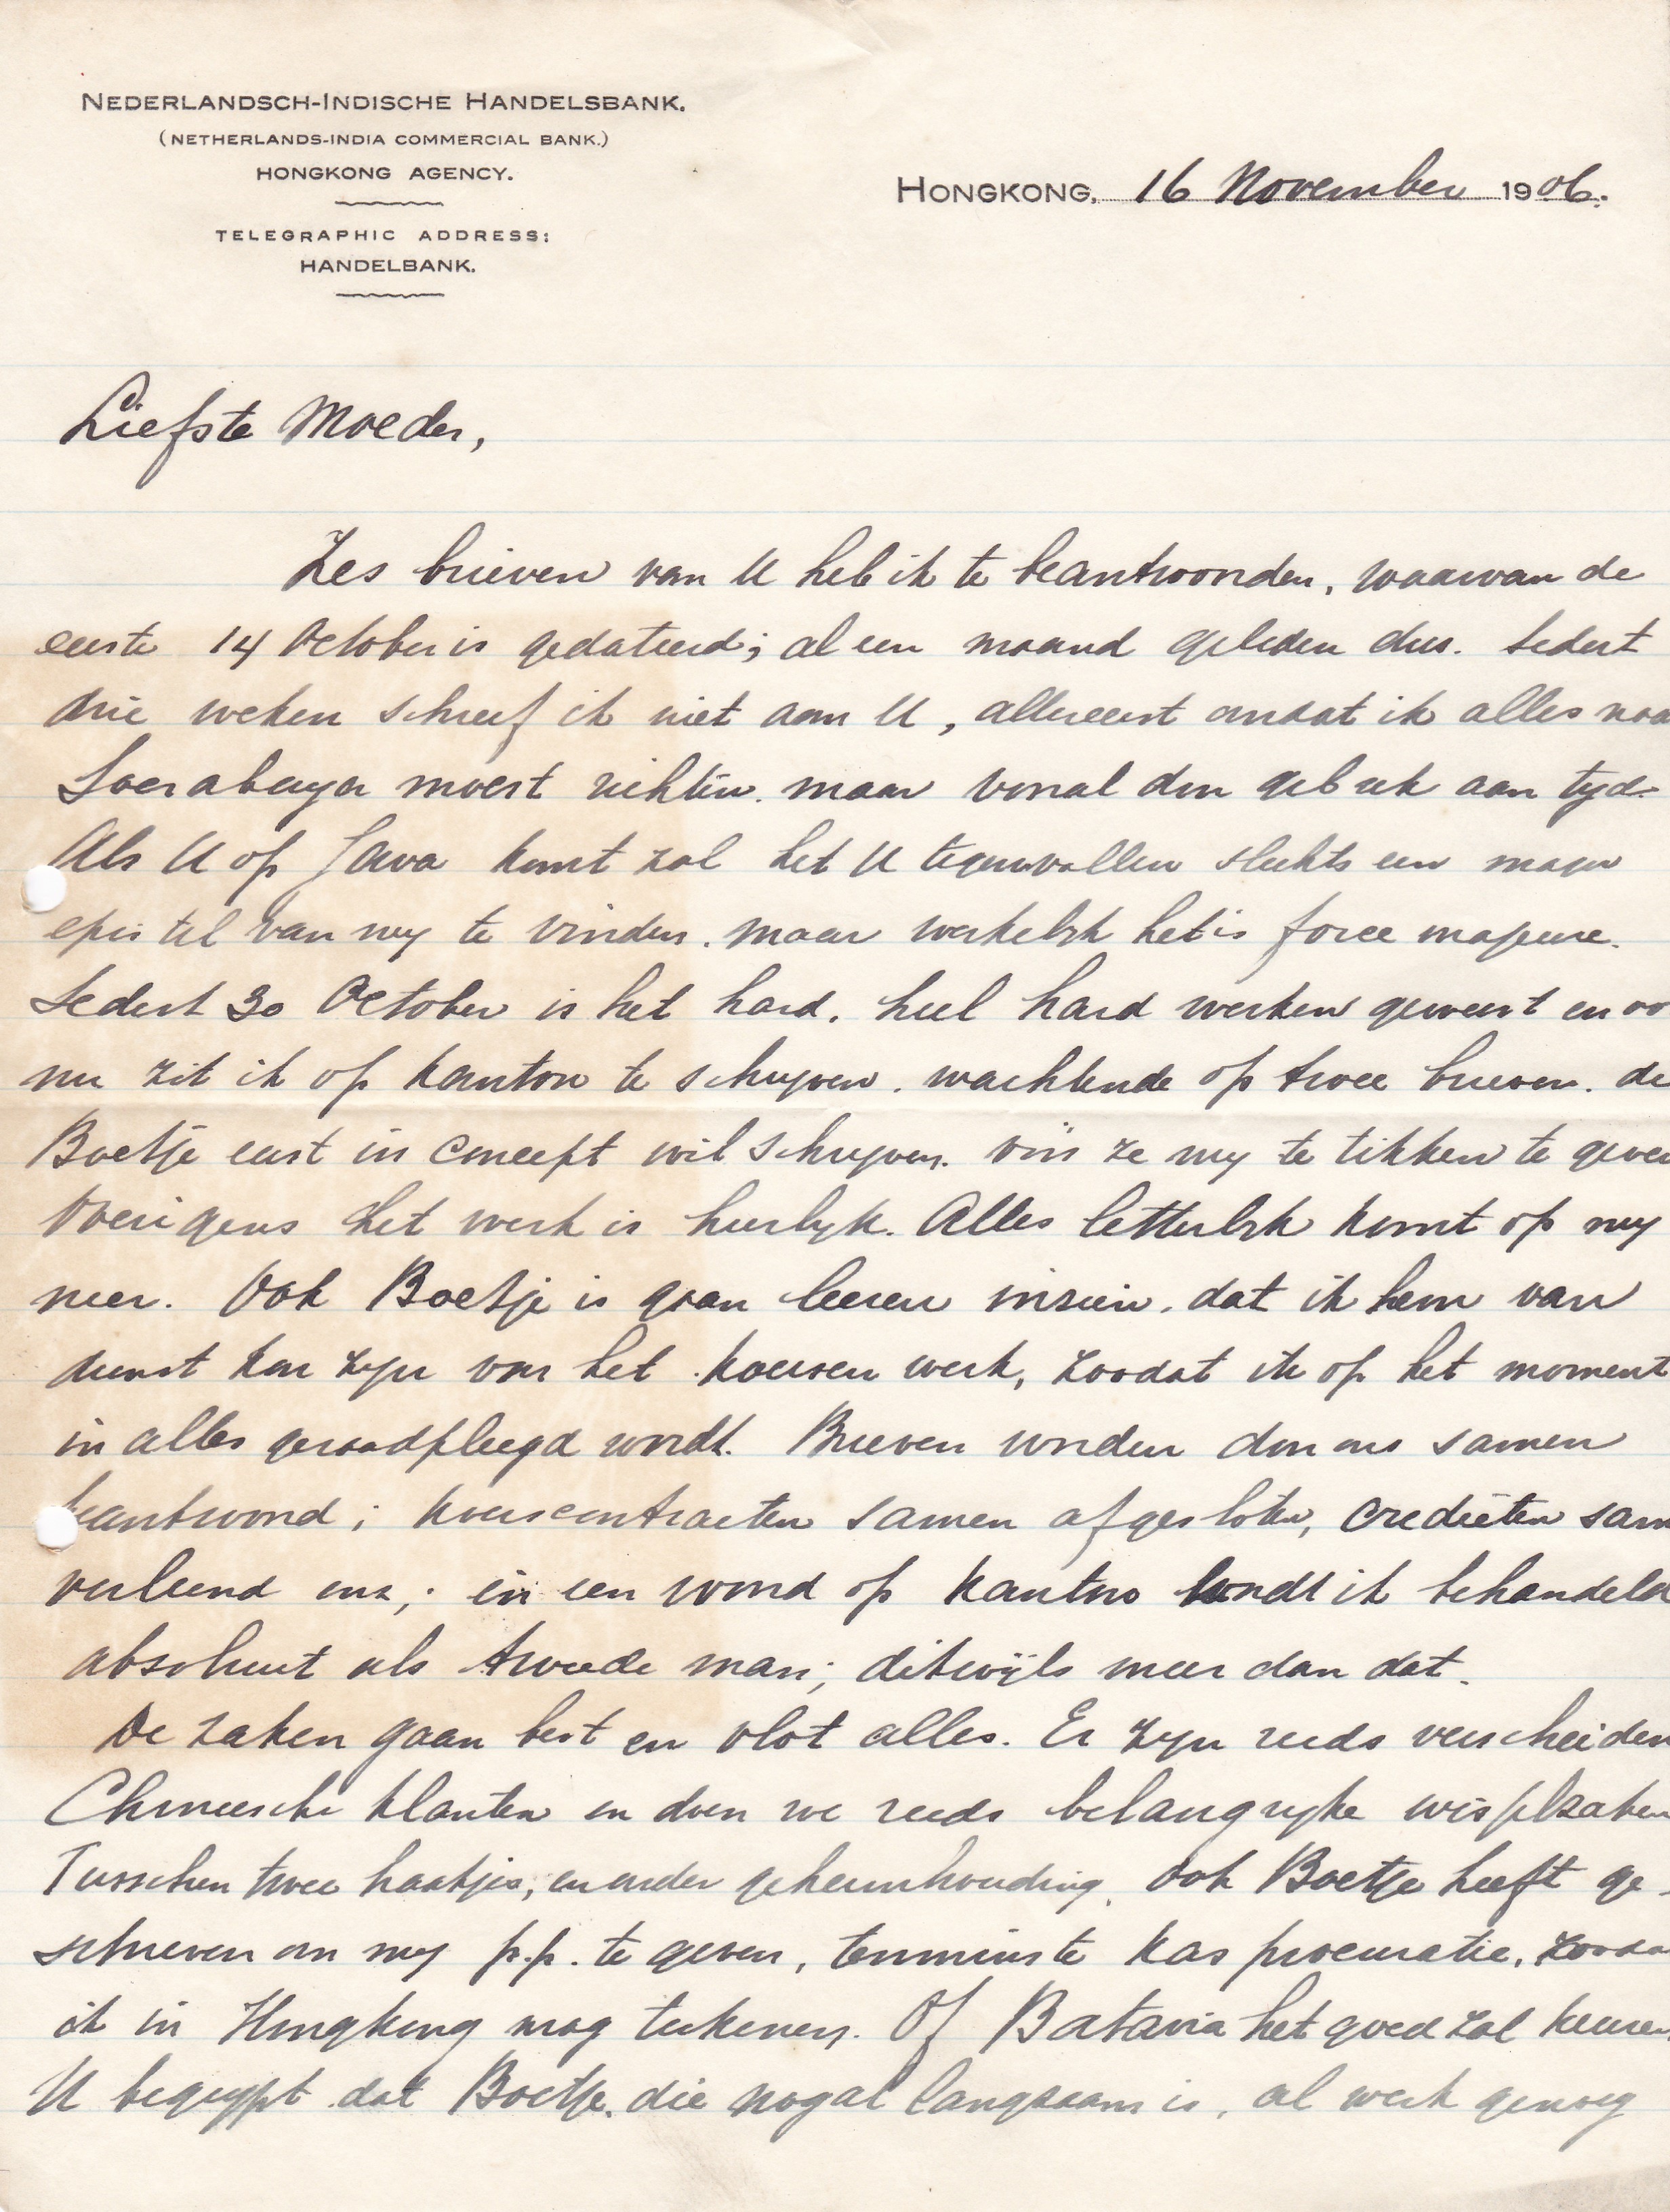 NEDERLANDSCH-INDISCHE HANDELSBANK.
(NETHERLANDS-INDIA COMMERCIAL BANK.)
HONGKONG AGENCY.
TELEGRAPHIC ADDRESS:
HANDELBANK.
HONGKONG, 16 November 1906.
Liefste Moeder,
Zes brieven van U heb ik te beantwoorden, waarvan de
eerste 14 October is gedateerd; al een maand geleden dus. Sedert
drie weken schreef ik niet aan U, allereerst omdat ik alles naa
Soerabaya moest richten, maar vooral door gebrek aan tyd.
Als U op Java komt zal het U tegenvallen slechts een mager
epistel van my te vinden, maar werkelyk het is force majeure.
Sedert 30 October is het hard, heel hard werken geweest en oo
nu zit ik op kantoor te schryven, wachtende op twee brieven, die
Boetje eerst in concept wil schryven, vóór ze my te tikken te geven
Overigens het werk is heerlyk. Alles letterlyk komt op my
neer. Ook Boetje is gaan leeren inzien, dat ik hem van
dienst kan zyn voor het koersen werk, zoodat ik op het moment
in alles geraadpleegd wordt. Brieven worden door ons samen
beantwoord; koerscontracten samen afgesloten, credieten sam
verleend enz; in een woord op kantoor wordt ik behandeld
absoluut als tweede man; dikwijls meer dan dat.
De zaken gaan best en vlot alles. Er zyn reeds verscheiden
Chineesche klanten en doen we reeds belangryke wisselzaken
Tusschen twee haakjes, en onder geheimhouding, ook Boetje heeft ge-
schreven om my p.p. te geven, tenminste kas procuratie, zooda
ik in Hongkong mag teekenen. Of Batavia het goed zal keuren
U begrypt dat Boetje, die nogal langzaam is, al werk genoeg